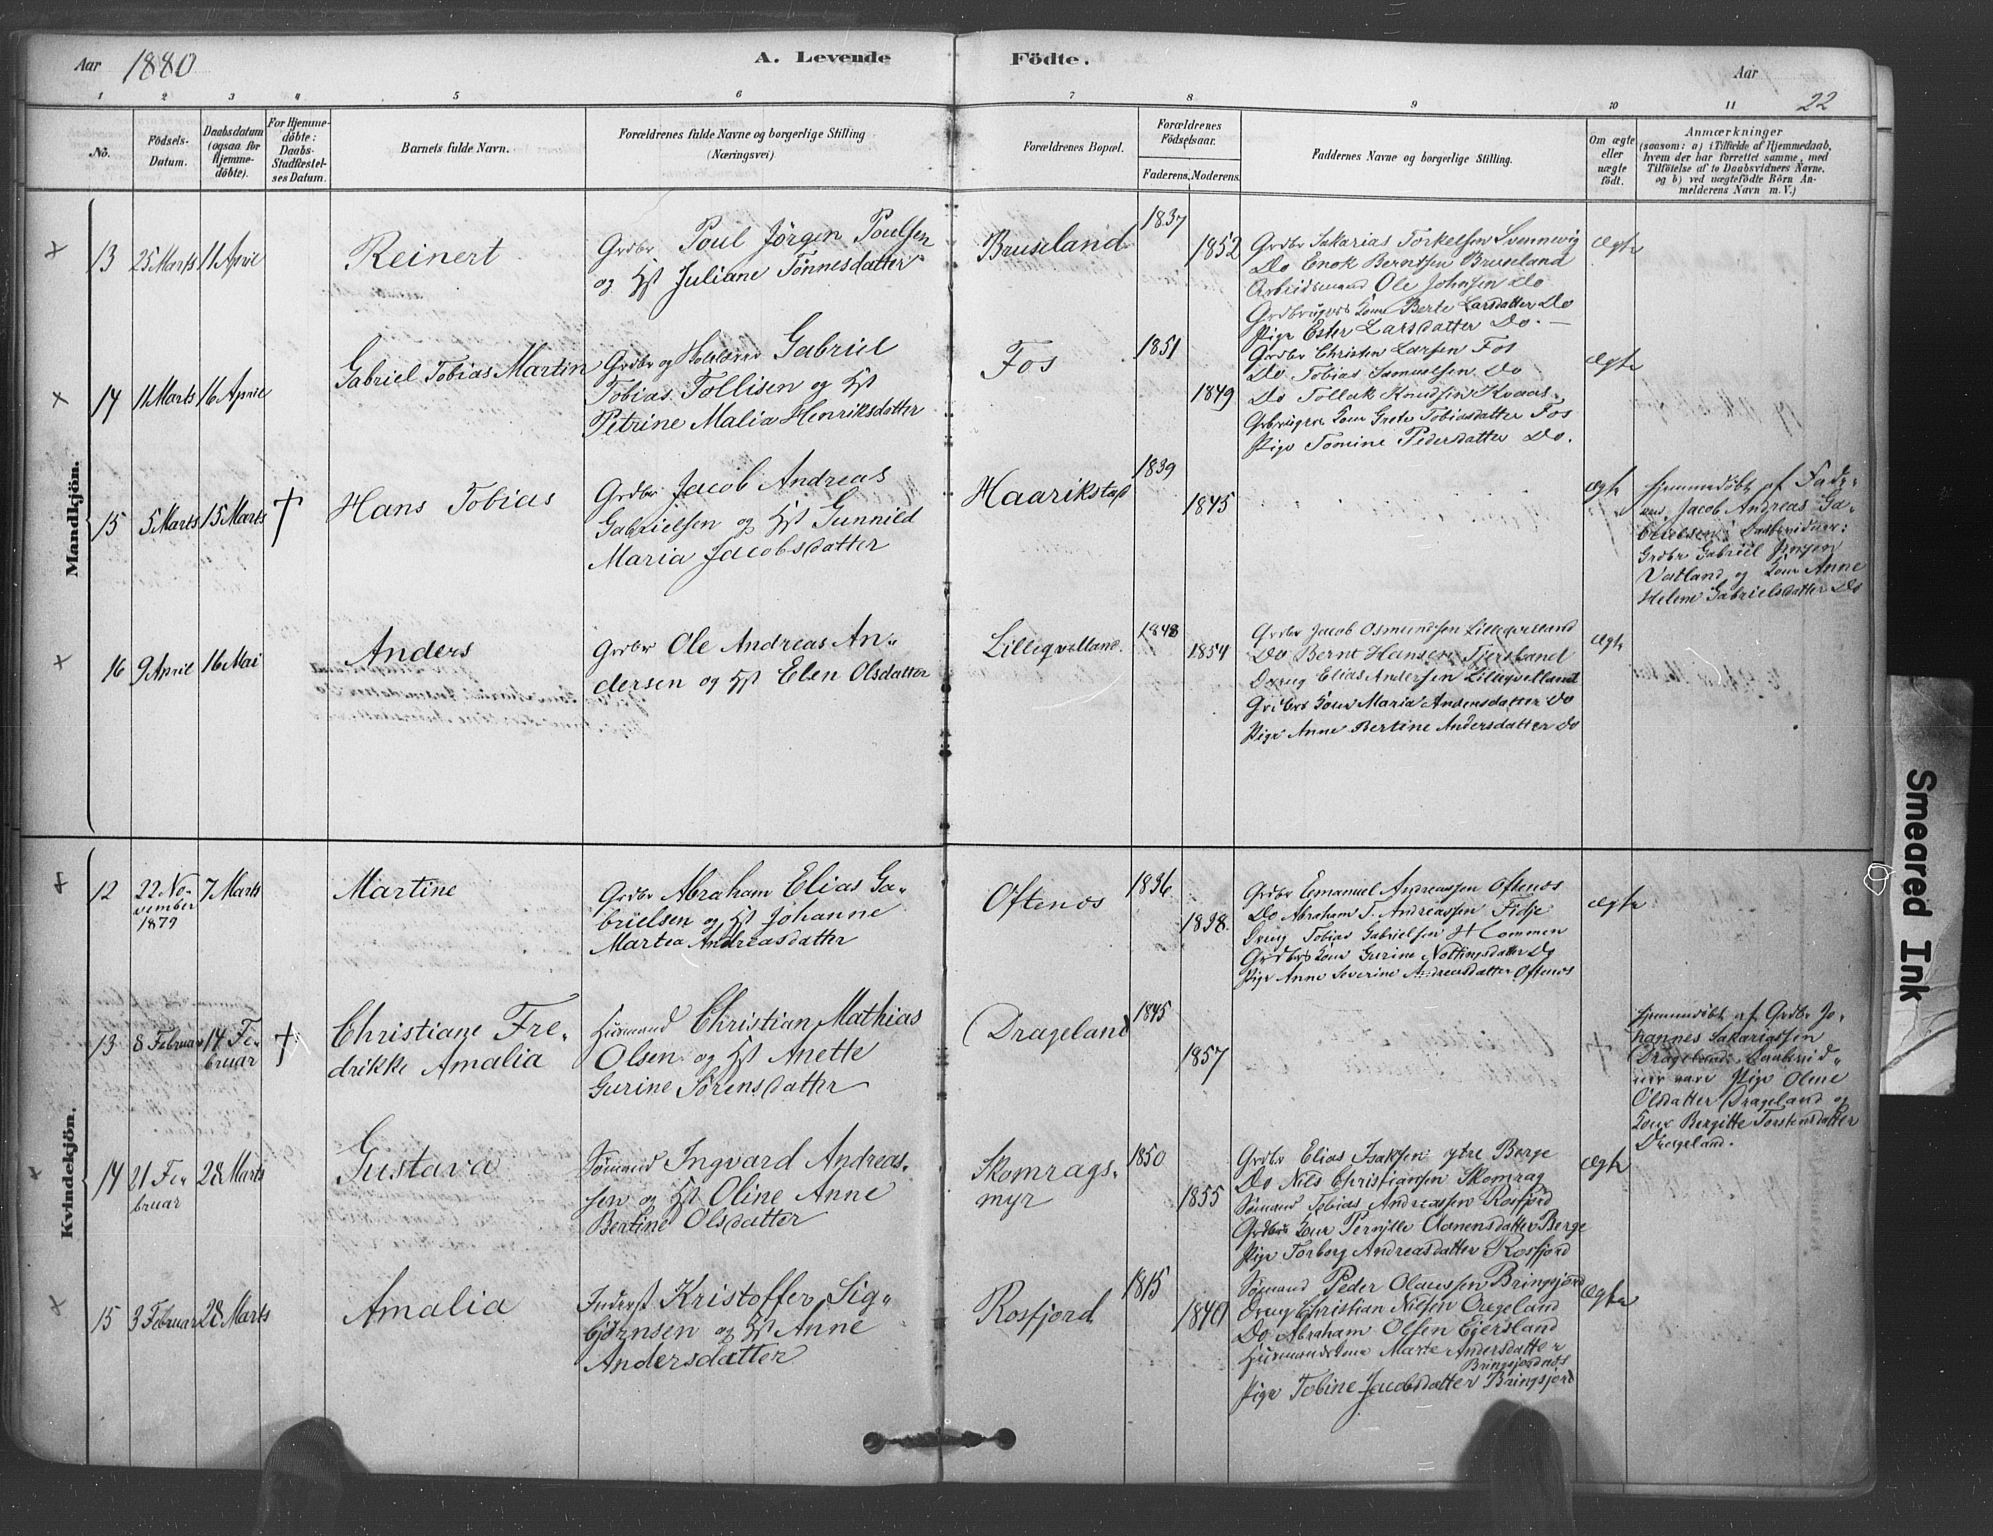 Aar 1880
A. Levende Födte.
Aar
22
1 2 3 4 5 6 7 8 9 10 11
No.
Födsels-
Datum.
Daabsdatum
(ogsaa for
Hjemme-
döbte).
For Hjemme-
döbte:
Daabs-
Stadfæstel-
ses Datum.
Barnets fulde Navn.
Forældrenes fulde Navne og borgerlige Stilling
(Næringsvei)
Forældrenes Bopæl.
Forældrenes
Födselsaar.
Faderens. Moderens.
Faddernes Navne og borgerlige Stilling.
Om ægte
eller
uægte
födt.
Anmærkninger
(saasom: a) i Tilfælde af Hjemmedaab,
hvem der har forrettet samme, med
Tilföielse af to Daabsvidners Navne,
og b) ved uægtefödte Börn An-
melderens Navn m. V.)
Mandkjön.
13 25 Marts 11 April
Reinert
Grdbr Poul Jörgen Poulsen
og Hst Juliane Tönnesdatter
Bruseland
1837
1852
Grdbr Sakarias Torkelsen Svennevig
Do Enok Berntsen Bruseland
Arbeidsmand Ole Johnsen Do
Grdbrugers Kone Berte Larsdatter Do
Pige Ester Larsdatter Do.
Ægte
14 11 Marts 16 April
Gabriel Tobias Martin
Grdbr og Gabriel
Tobias Tollisen og Hst
Petrine Malia Henriksdatter
Fos
1851
1849
Grdbr Christen Larsen Fos
Do Tobias Samuelsen Do
Do Tollak Knudsen Kvaas
Grbrugers Kone Grete Tobiasdatter Fos
Pige Tomine Pedersdatter Do.
Ægte
15 5 Marts 15 Marts †
Hans Tobias
Grdbr Jacob Andreas
Gabrielsen og Hst Gunnild
Maria Jacobsdatter
Haarikstad
1839
1845
Ægte
Hjemmedöbt af Fade-
ren, Jacob Andreas Ga-
brielsen; Daabsvidner:
Grdbr Gabriel Jensen
Vatland og Kone Anne
Helene Gabrielsdatter Do
16 9 April 16 Mai
Anders
Grdbr Ole Andreas An-
dersen og Hst Elen Olsdatter
Lilleqvelland.
1848
1854
Grdbr Jacob Osmundsen Lilleqvelland
Do Bernt Hansen Tjersland
Dreng Elias Andersen Lilleqvelland
Grdbrs Kone Maria Andersdatter Do
Pige Anne Bertine Andersdatter Do
Ægte
Kvindekjön.
12 22 No-
vember
1879
7 Marts
Martine
Grdbr Abraham Elias Ga-
brielsen og Hst Johanne
Martea Andreasdatter
Oftenes
1836
1838.
Grdbr Emanuel Andreassen Oftenes
Do Abraham T. Andreassen Fidje
Dreng Tobias Gabrielsen H Commen
Grdbrs Kone Gurine Do
Pige Anne Severine Andreasdatter Oftenes
Ægte
13 8 Februar 14 Fe-
bruar †
Christiane Fre-
drikke Amalia
Husmand Christian Mathias
Olsen og Hst Anette
Gurine Sörensdatter
Drageland
1845
1857
Hjemmedöbt af Grdbr Jo-
hannes Sakariassen
Drageland. Daabsvid-
ner vare Pige Olene
Olsdatter Drageland og
Kone Bergitte Torstensdatter
Drageland.
14 21 Fe-
bruar
28 Marts
Gustava
Sømand Ingvard Andreas-
sen og Hst Oline Anne
Bertine Olsdatter
Skomrags-
myr
1850
1855
Grdbr Elias Isaksen ytre Berge
Do Nils Christiansen Skomrag
Sømand Tobias Andreassen Rosfjord
Grdbrs Kone Pernille Aanensdatter Berge
Pige Torborg Andreasdatter Rosfjord
Ægte
15 3 Februar 28 Marts
Amalia
Inderst Kristoffer Sig-
björnsen og Hst Anne
Andersdatter
Rosfjord
1815
1840
Sømand Peder Olaussen Bringsjord
Dreng Christian Nilsen Øregeland
Do Abraham Olsen Eiersland
Husmands Kone Marte Andersdatter
Bringsjordnes
Pige Tobine Jacobsdatter Bringsjord
Ægte
Smeared Ink